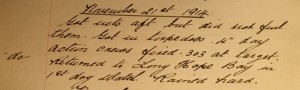 November 21st 1914
Got nets aft but did not fuel
them. Got in torpedoes to day
-do- action crews fired .303 at target.
Returned to Long Hope Bay in
1st dog Watch. Rained hard.